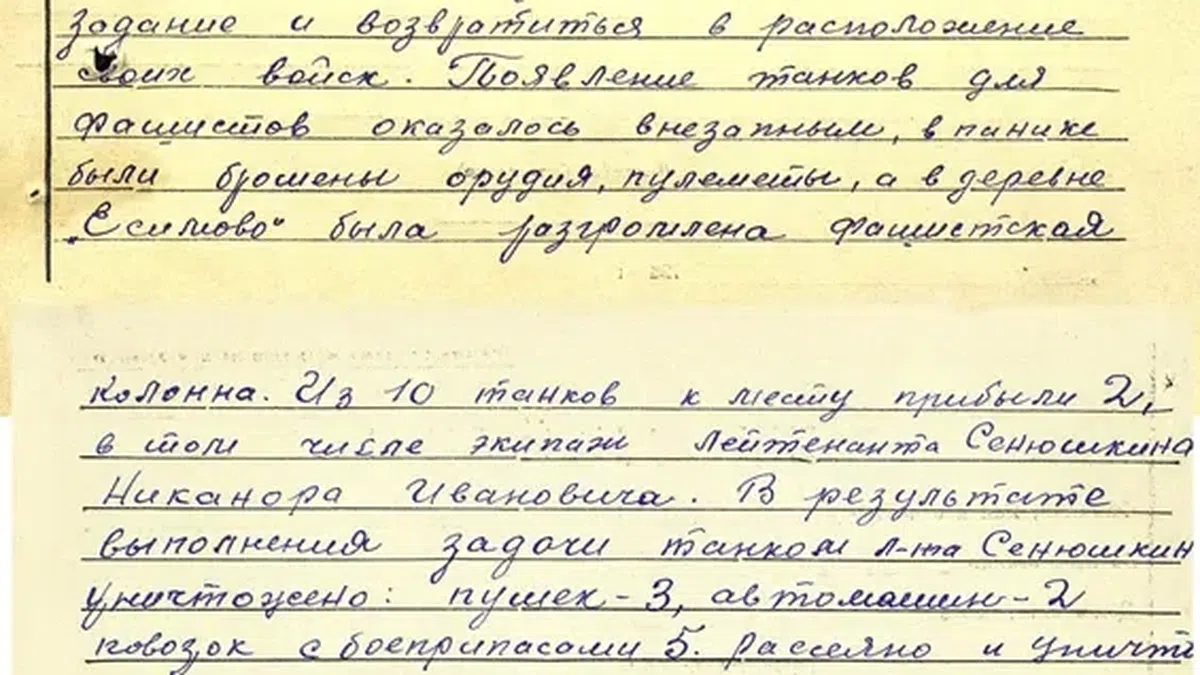 задание и возвратиться в расположение
своих войск. Появление танков для
фашистов оказалось внезапным, в панике
были брошены орудия, пулеметы, а в деревне
„Есимово" была разгромлена фашистская
колонна. Из 10 танков к месту прибыли 2,
в том числе экипаж лейтенанта Сенюшкина
Никанора Ивановича. В результате
выполнения задачи танком л-та Сенюшкин
уничтожено: пушек - 3, автомашин - 2
повозок с боеприпасами 5. Рассеяно и уничт